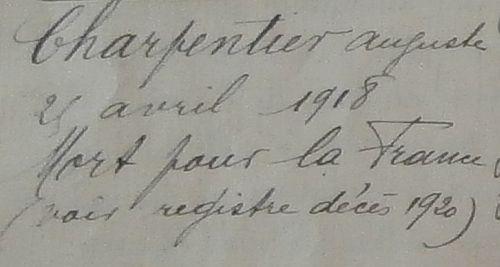 Charpentier auguste
25 avril 1918
Mort pour la France
(voir registre décés 1920)